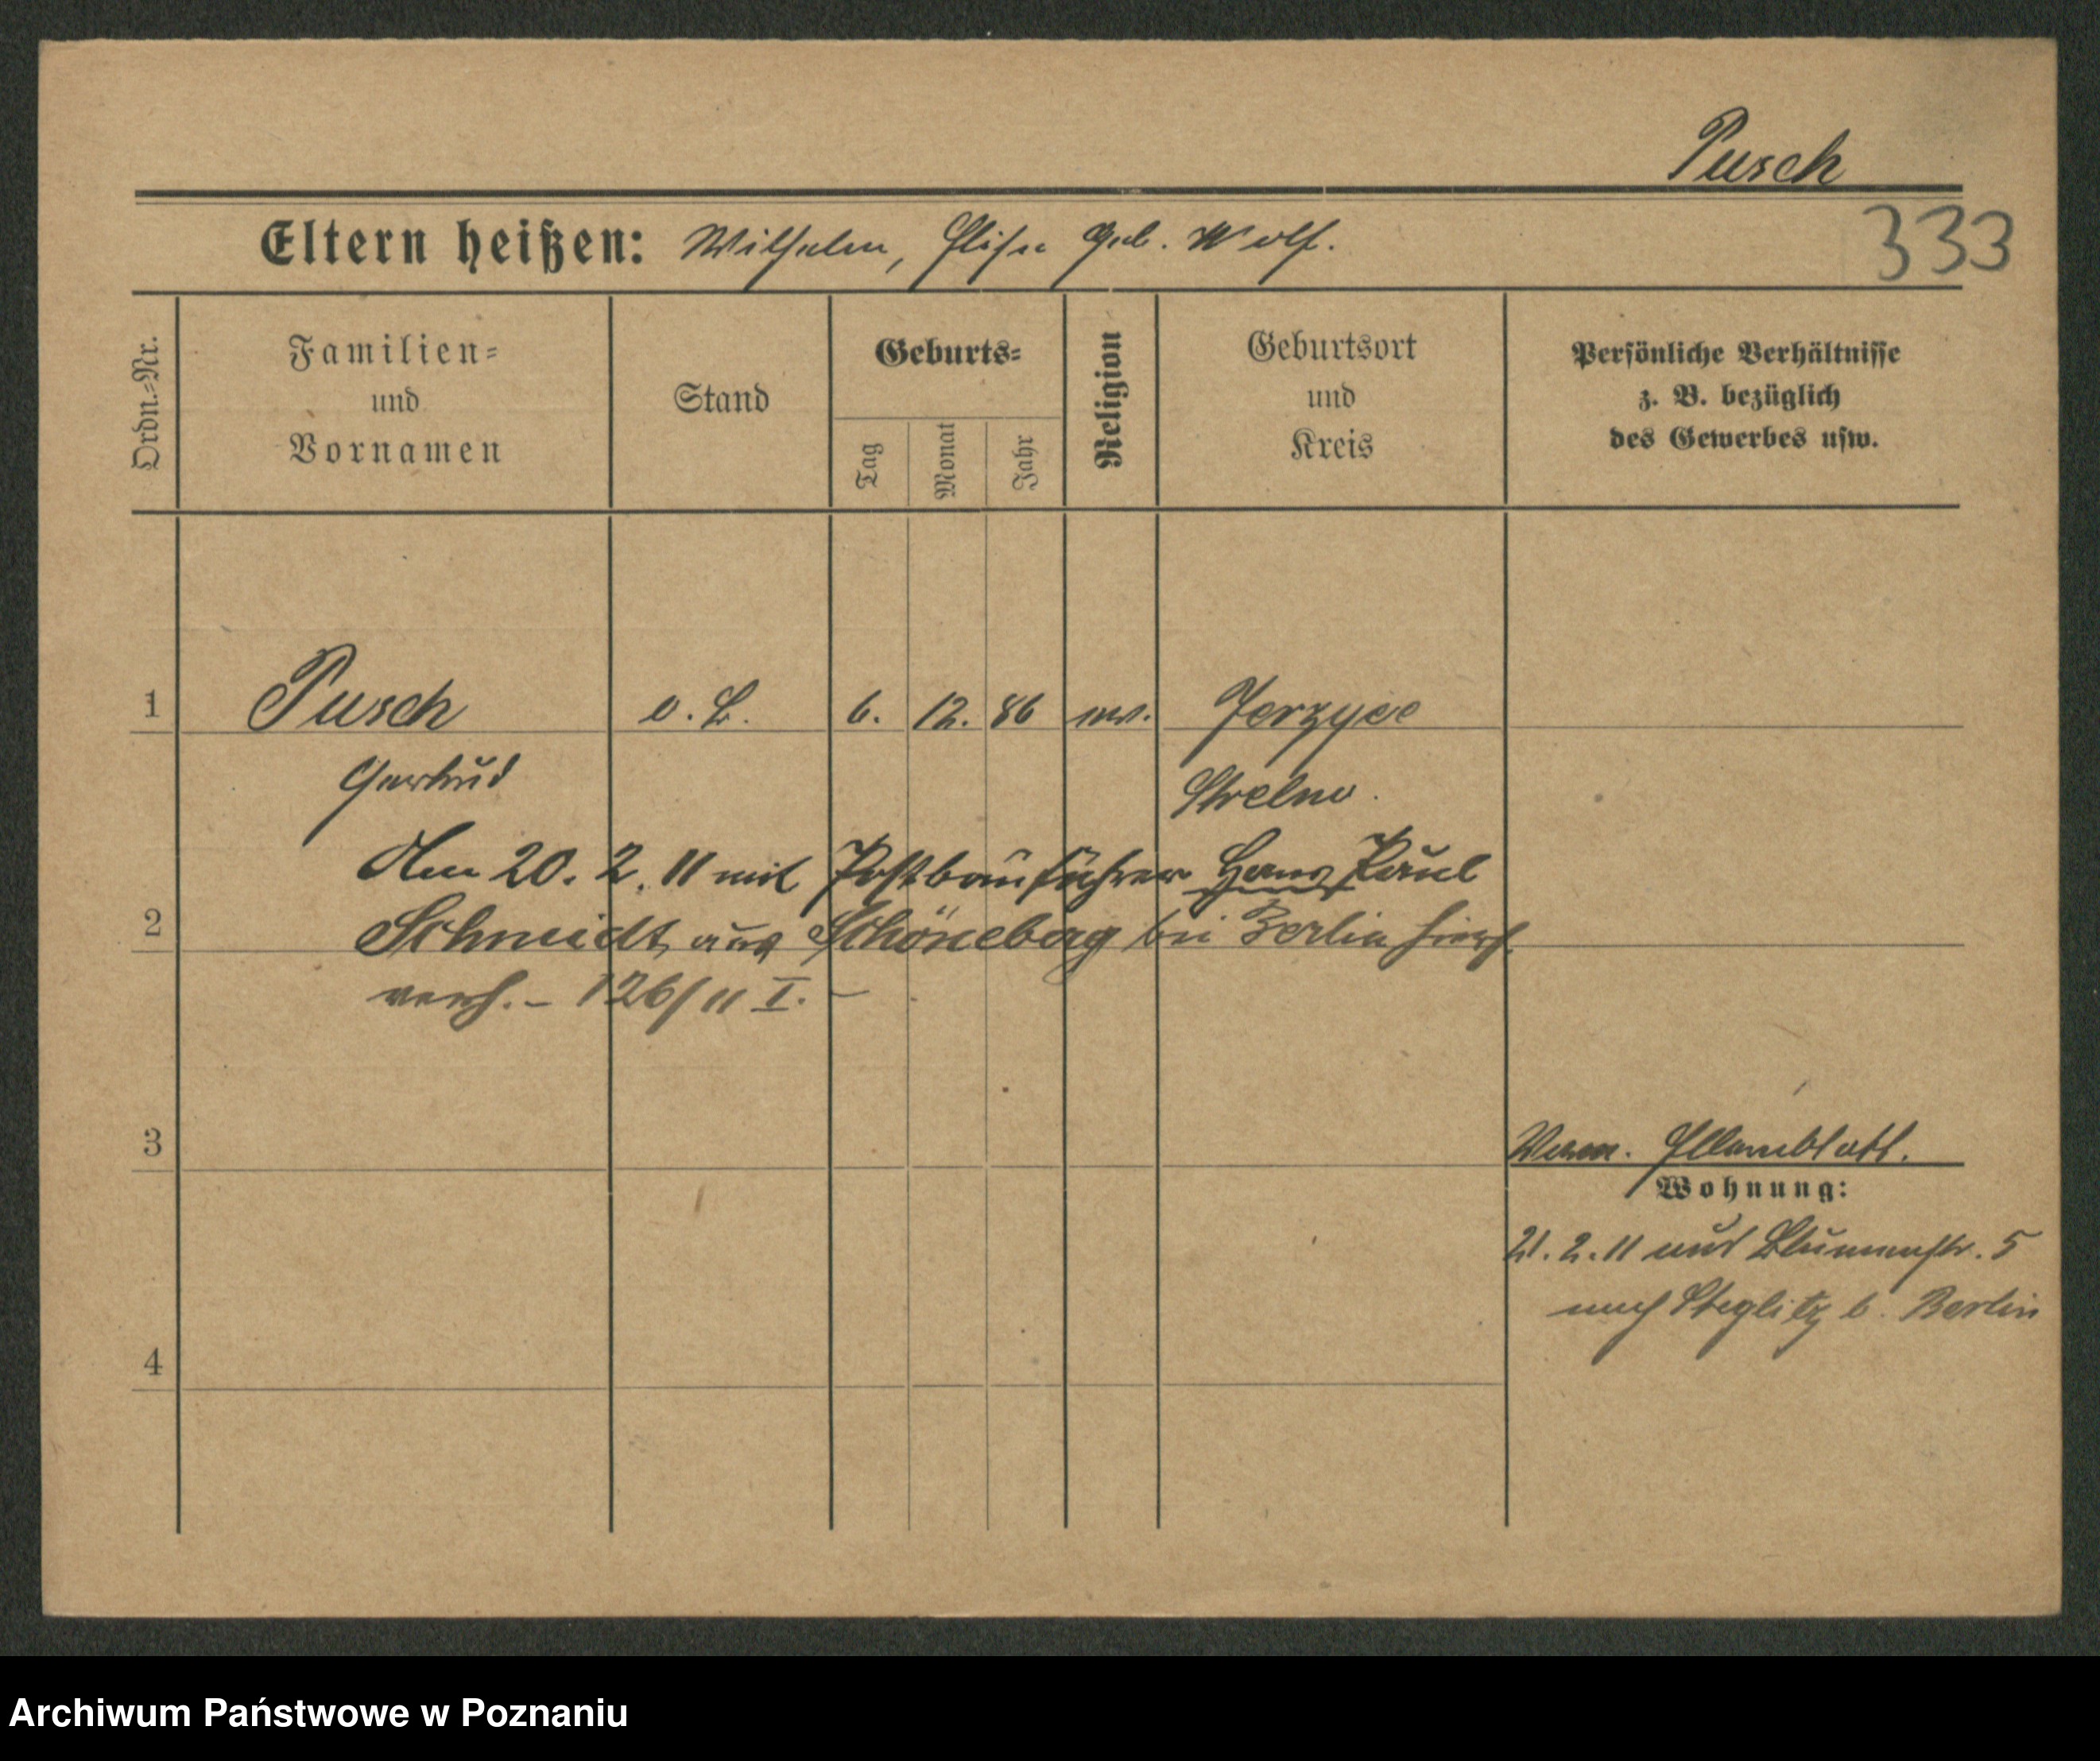 Pusch
333
Eltern heißen: Wilhelm, Elise geb. Wolf.
Ordn.-Nr.
Familien-
und
Vornamen
Stand
Geburts-
Tag
Monat
Jahr
Religion
Geburtsort
und
Kreis
Persönliche Verhältnisse
z. B. bezüglich
des Gewerbes usw.
1
Pusch
o. B.
6. 12. 86
ev.
Jerzyce
Gertrud
Strelno.
Am 20. 2. 11 mit Postbauführer Hans Paul
2
Schmidt aus Schöneberg bei Berlin hiers.
verh. – 126/11 I. –
3
Verm. Elternblatt.
Wohnung:
21. 2. 11 aus Blumenstr. 5
nach Steglitz b. Berlin
4
Archiwum Państwowe w Poznaniu